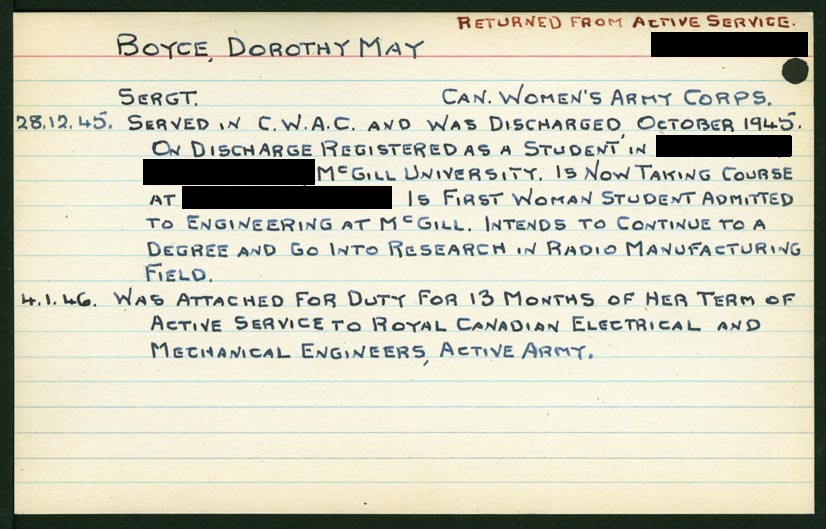 RETURNED FROM ACTIVE SERVICE.
BOYCE, DOROTHY MAY
SERGT. CAN. WOMEN'S ARMY CORPS.
28.12.45. SERVED IN C.W.A.C. AND WAS DISCHARGED, OCTOBER 1945.
ON DISCHARGE REGISTERED AS A STUDENT IN
McGILL UNIVERSITY. IS NOW TAKING COURSE
AT IS FIRST WOMAN STUDENT ADMITTED
TO ENGINEERING AT McGILL. INTENDS TO CONTINUE TO A
DEGREE AND GO INTO RESEARCH IN RADIO MANUFACTURING
FIELD.
4.1.46. WAS ATTACHED FOR DUTY FOR 13 MONTHS OF HER TERM OF
ACTIVE SERVICE TO ROYAL CANADIAN ELECTRICAL AND
MECHANICAL ENGINEERS, ACTIVE ARMY.